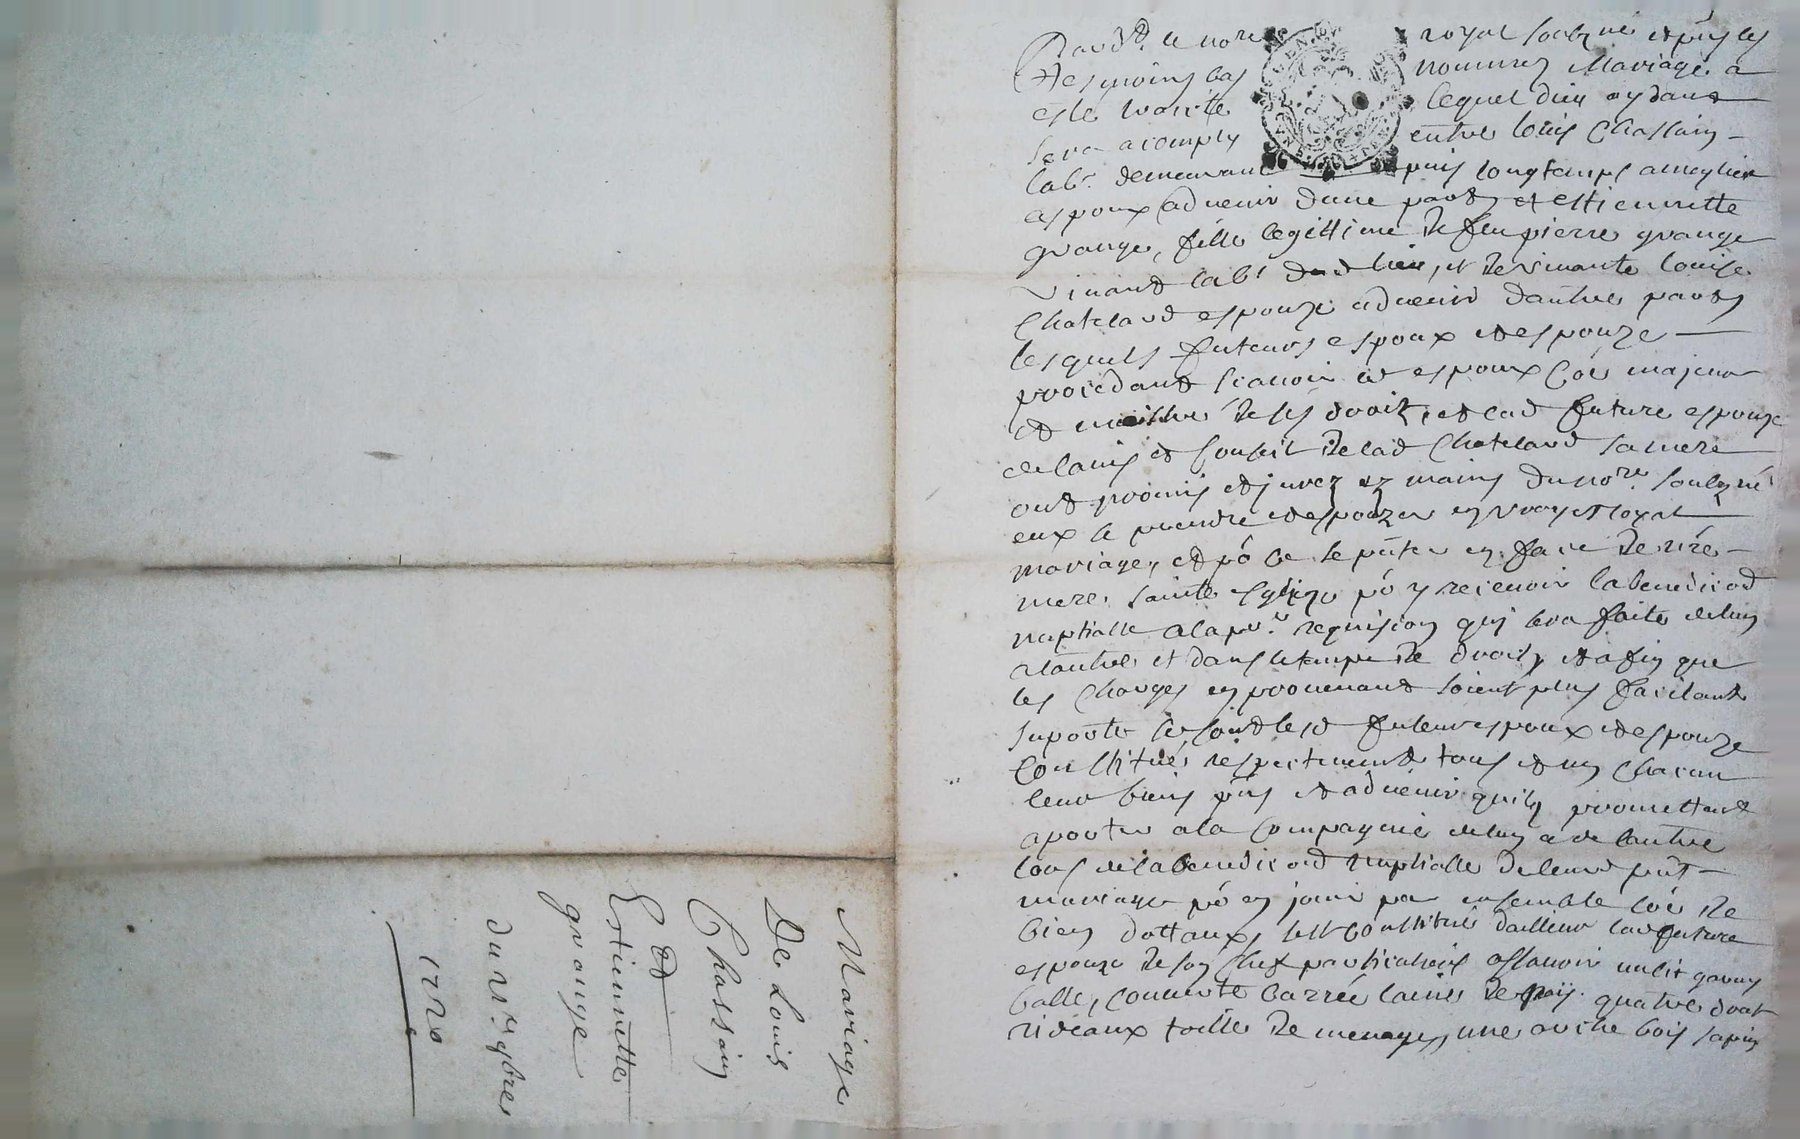 Pard.t le no.re royal soubzné et pñs les
tesmoins bas nommez Mariage a
esté traicté lequel dieu aydant
sera acomply entre louis Chassain
lab.r demeurant puis longtemps a
espoux advenir dune part et estiennette
grange, fille legittime de feu pierre grange
vivant lab.r dud lieu, et de vivante louise
Chatelard espouze advenir dautre part
lesquels futeurs espoux et espouze
procedant scavoir led espoux coe majeur
et maistre de ses droits, et lad future espouze
de lavis et conseil de lad Chatelard sa mere
ont promis et jurez ez mains du no.re soubzné
eux se prendre et espouzer en vray et loyal
mariage, et po ce se pñter en face de nre
mere sainte eglize po y recevoir la benedicõn
nuptialle a la pre. requision qui sera faite de lun
a lautre et dans le temps de droit, et afin que
les charges en provenant soient plus facilent
suporté se sont lesd futeurs espoux et espouze
constitués respectivement tous et un chacun
leur biens pñs et advenir quils promettent
aporter a la compagnie de lun a de lautre
lors de la benedicõn nuptialle de leur pñt
mariage po en jouir par ensemble coe de
bien dottaux, sest constitué dailleur lad future
espouze de son chef particulier assavoir un lit garny
balle, couverte barrée laine de pais quatre
rideaux toille de menage, une arche bois sapin
Mariage
De Louis
Chassain
Et
Estiennette
grange
du 9bre
1720